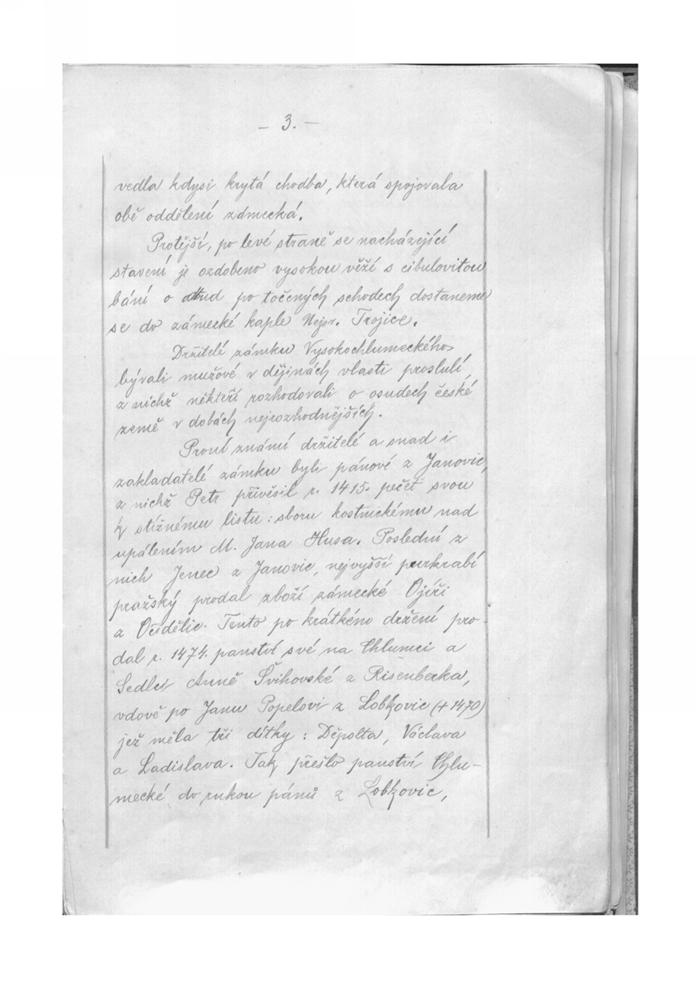 – 3. –
vedla kdysi krytá chodba, která spojovala
obě oddělení zámecká.
Protější, po levé straně se nacházející
stavení je ozdobeno vysokou věží s cibulovitou
bání o od tud po točených schodech dostaneme
se do zámecké kaple Nejsv. Trojice.
Držitelé zámku Vysokochlumeckého
bývali mužové v dějinách vlasti proslulí,
z nichž někteří rozhodovali o osudech české
země v dobách nejrozhodnějších.
První známí držitelé a snad i
zakladatelé zámku byli pánové z Janovic,
z nichž Petr přivěsil r. 1415. pečeť svou
k stížnému listu: sboru kostnickému nad
upálením M. Jana Husa. Poslední z
nich Jenec z Janovic, nejvyšší purkrabí
pražský prodal zboží zámecké Ojíři
z Očedělic. Tento po krátkém držení pro-
dal r. 1474. panství své na Chlumci a
Sedlci Anně Švihovské z Risenberka,
vdově po Janu Popelovi z Lobkovic (+ 1470)
jež měla tři dítky: Děpolta, Václava
a Ladislava. Tak přešlo panství Chlu-
mecké do rukou pánů z Lobkovic,